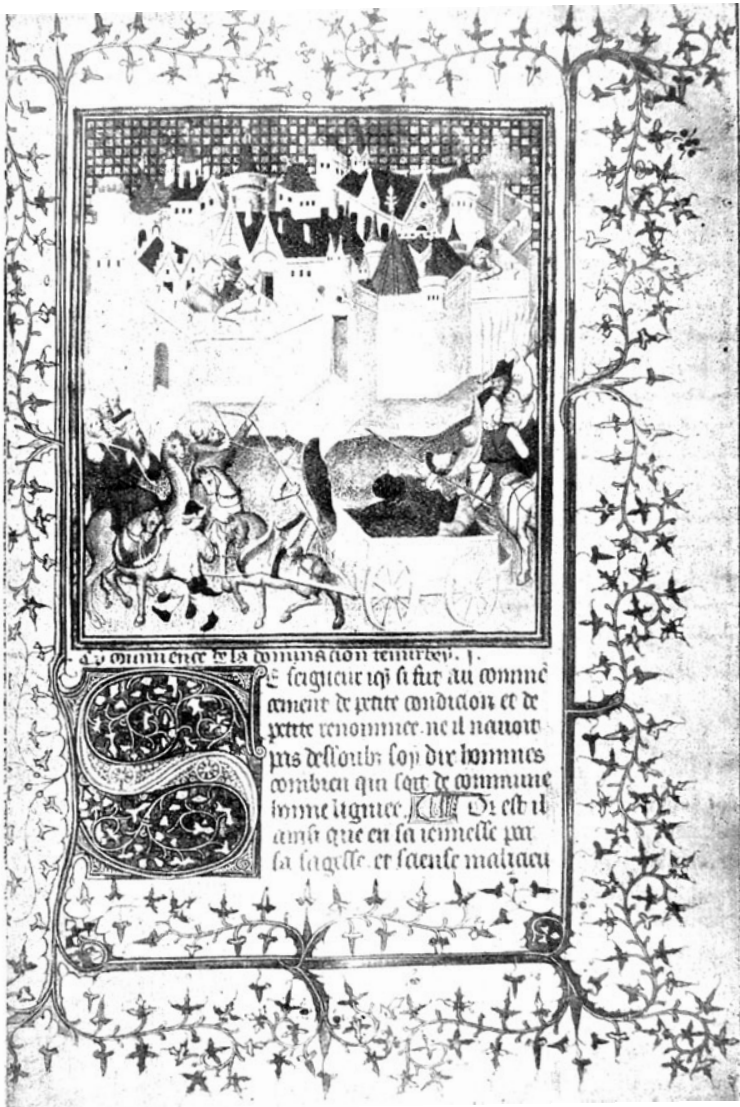 Cy commence de la dominacion temirbey. j.
Se seigneur icy si fut au commē
cement de petite condicion et de
petite renommee. ne il nauoit
pas dessoubz soy dix hommes
combien quil soit de commune
bonne lignee. Or est il
ainsi que en sa iennesse par
sa sagesse et sciense malicieu